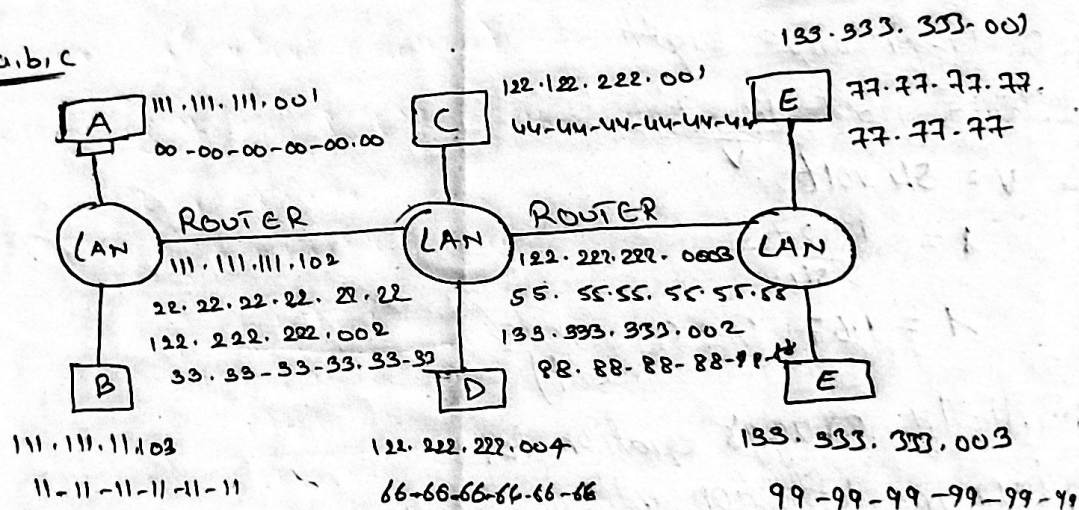 a,b,c
133.333.333-001
A
111.111.111.001
00-00-00-00-00.00
C
122.122.222.001
44-44-44-44-44-44
E
77.77.77.77.
77.77.77
LAN
ROUTER
111.111.111.102
22.22.22.22.22.22
122.222.222.002
33.33-33-33.33-33
LAN
ROUTER
122.222.222.0003
55.55.55.55.55.55
133.333.333.002
88-88-88
LAN
B
D
E
111.111.11.103
11-11-11-11-11-11
122.222.222.004
66-66-66-66-66-66
133.333.333.003
99-99-99-99-99-99